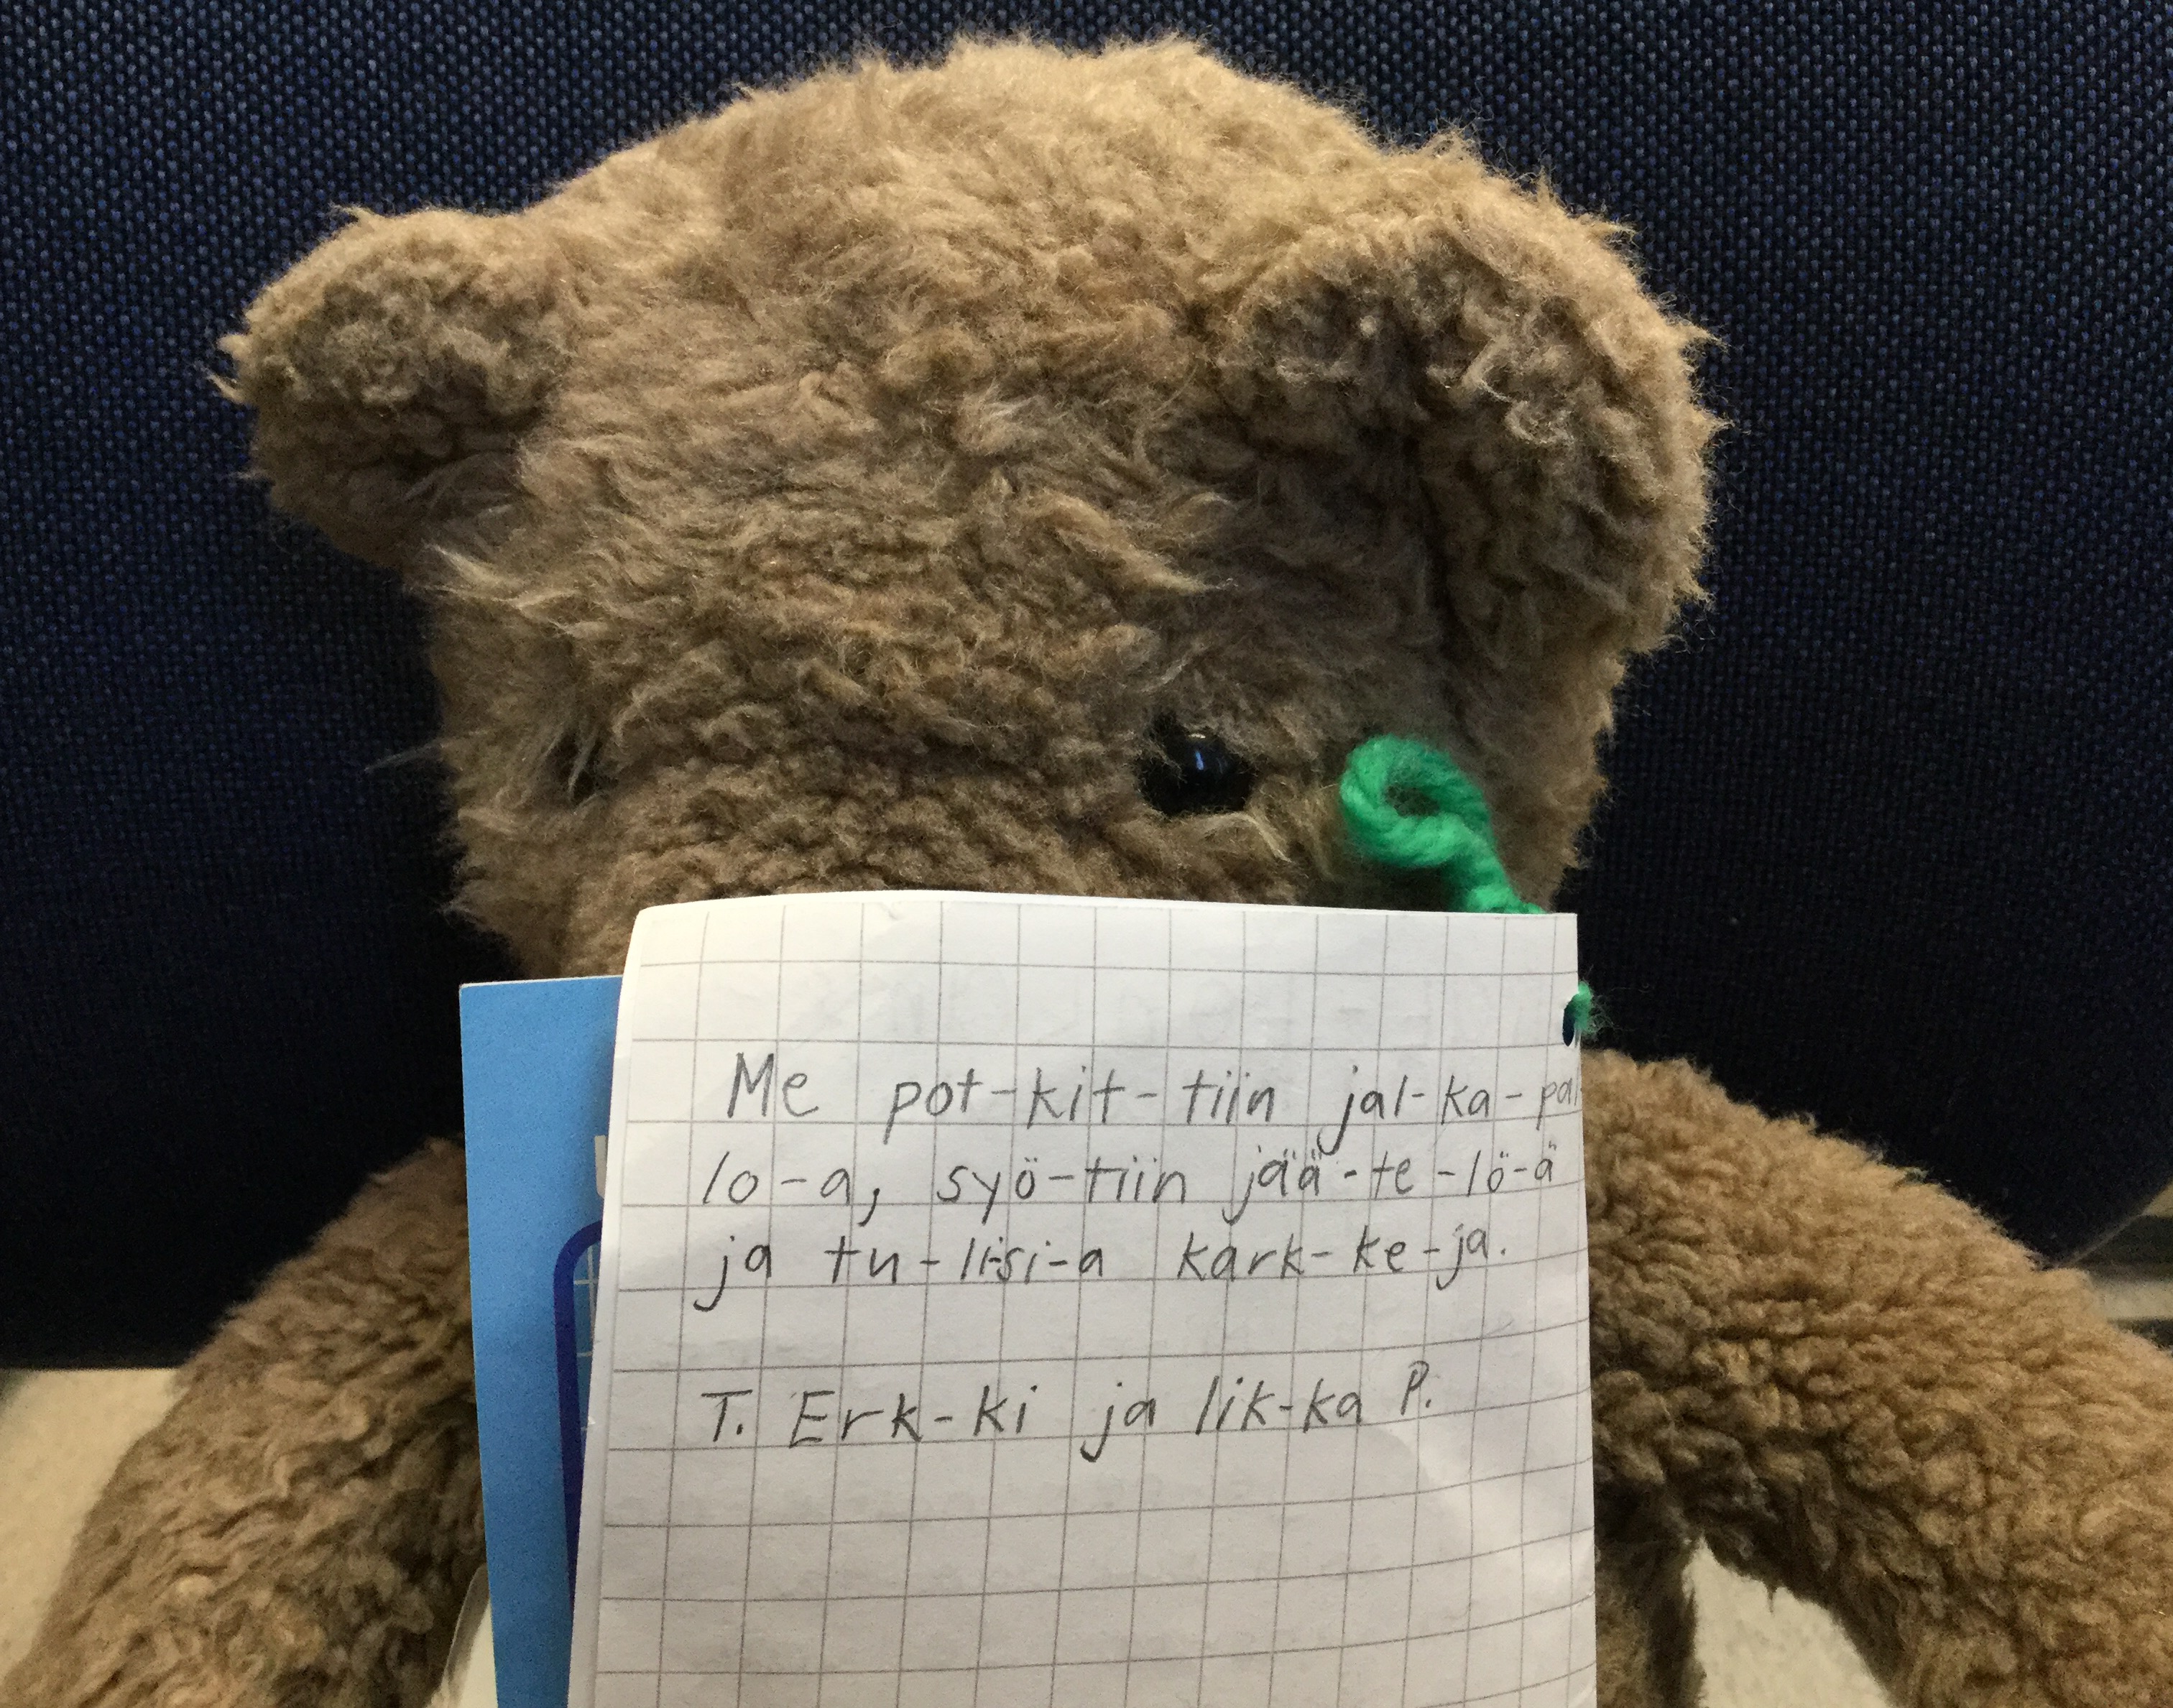 Me pot-kit-tiin jal-ka-pal
lo-a, syö-tiin jää-te-lö-ä
ja tu-li-si-a kark-ke-ja.
T. Erk-ki ja Iik-ka P.